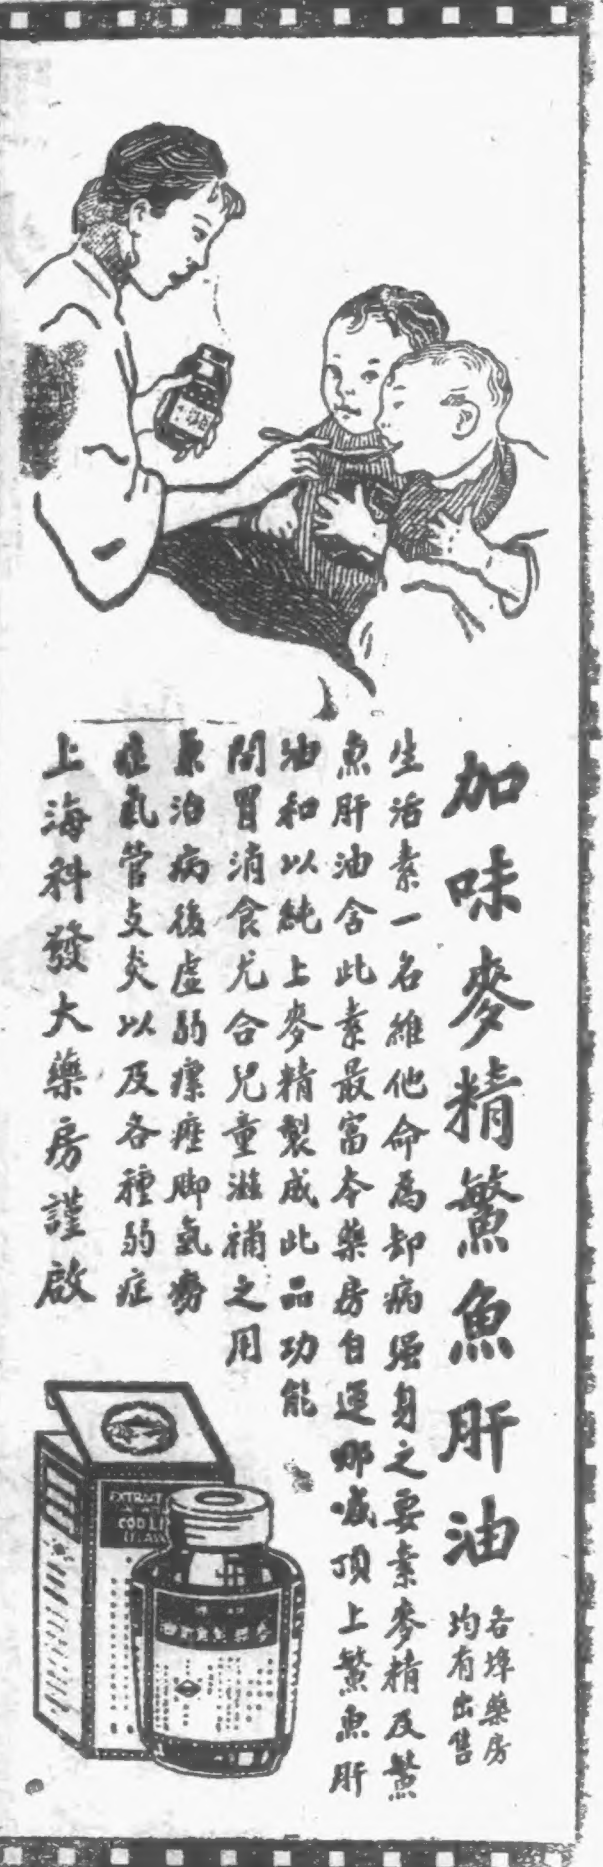 加味麥精鱉魚肝油
各埠藥房
均有出售
生活素一名維他命為却病强身之要素麥精及鱉
魚肝油含此素最富本藥房自運哪喊頂上鱉魚肝
油和以純上麥精製成此品功能
開胃消食尤合兒童滋補之用
兼治病後虛弱瘰癧脚氣癆
症氣管支炎以及各種弱症
上海科發大藥房謹啟
EXTRACT
COD LI